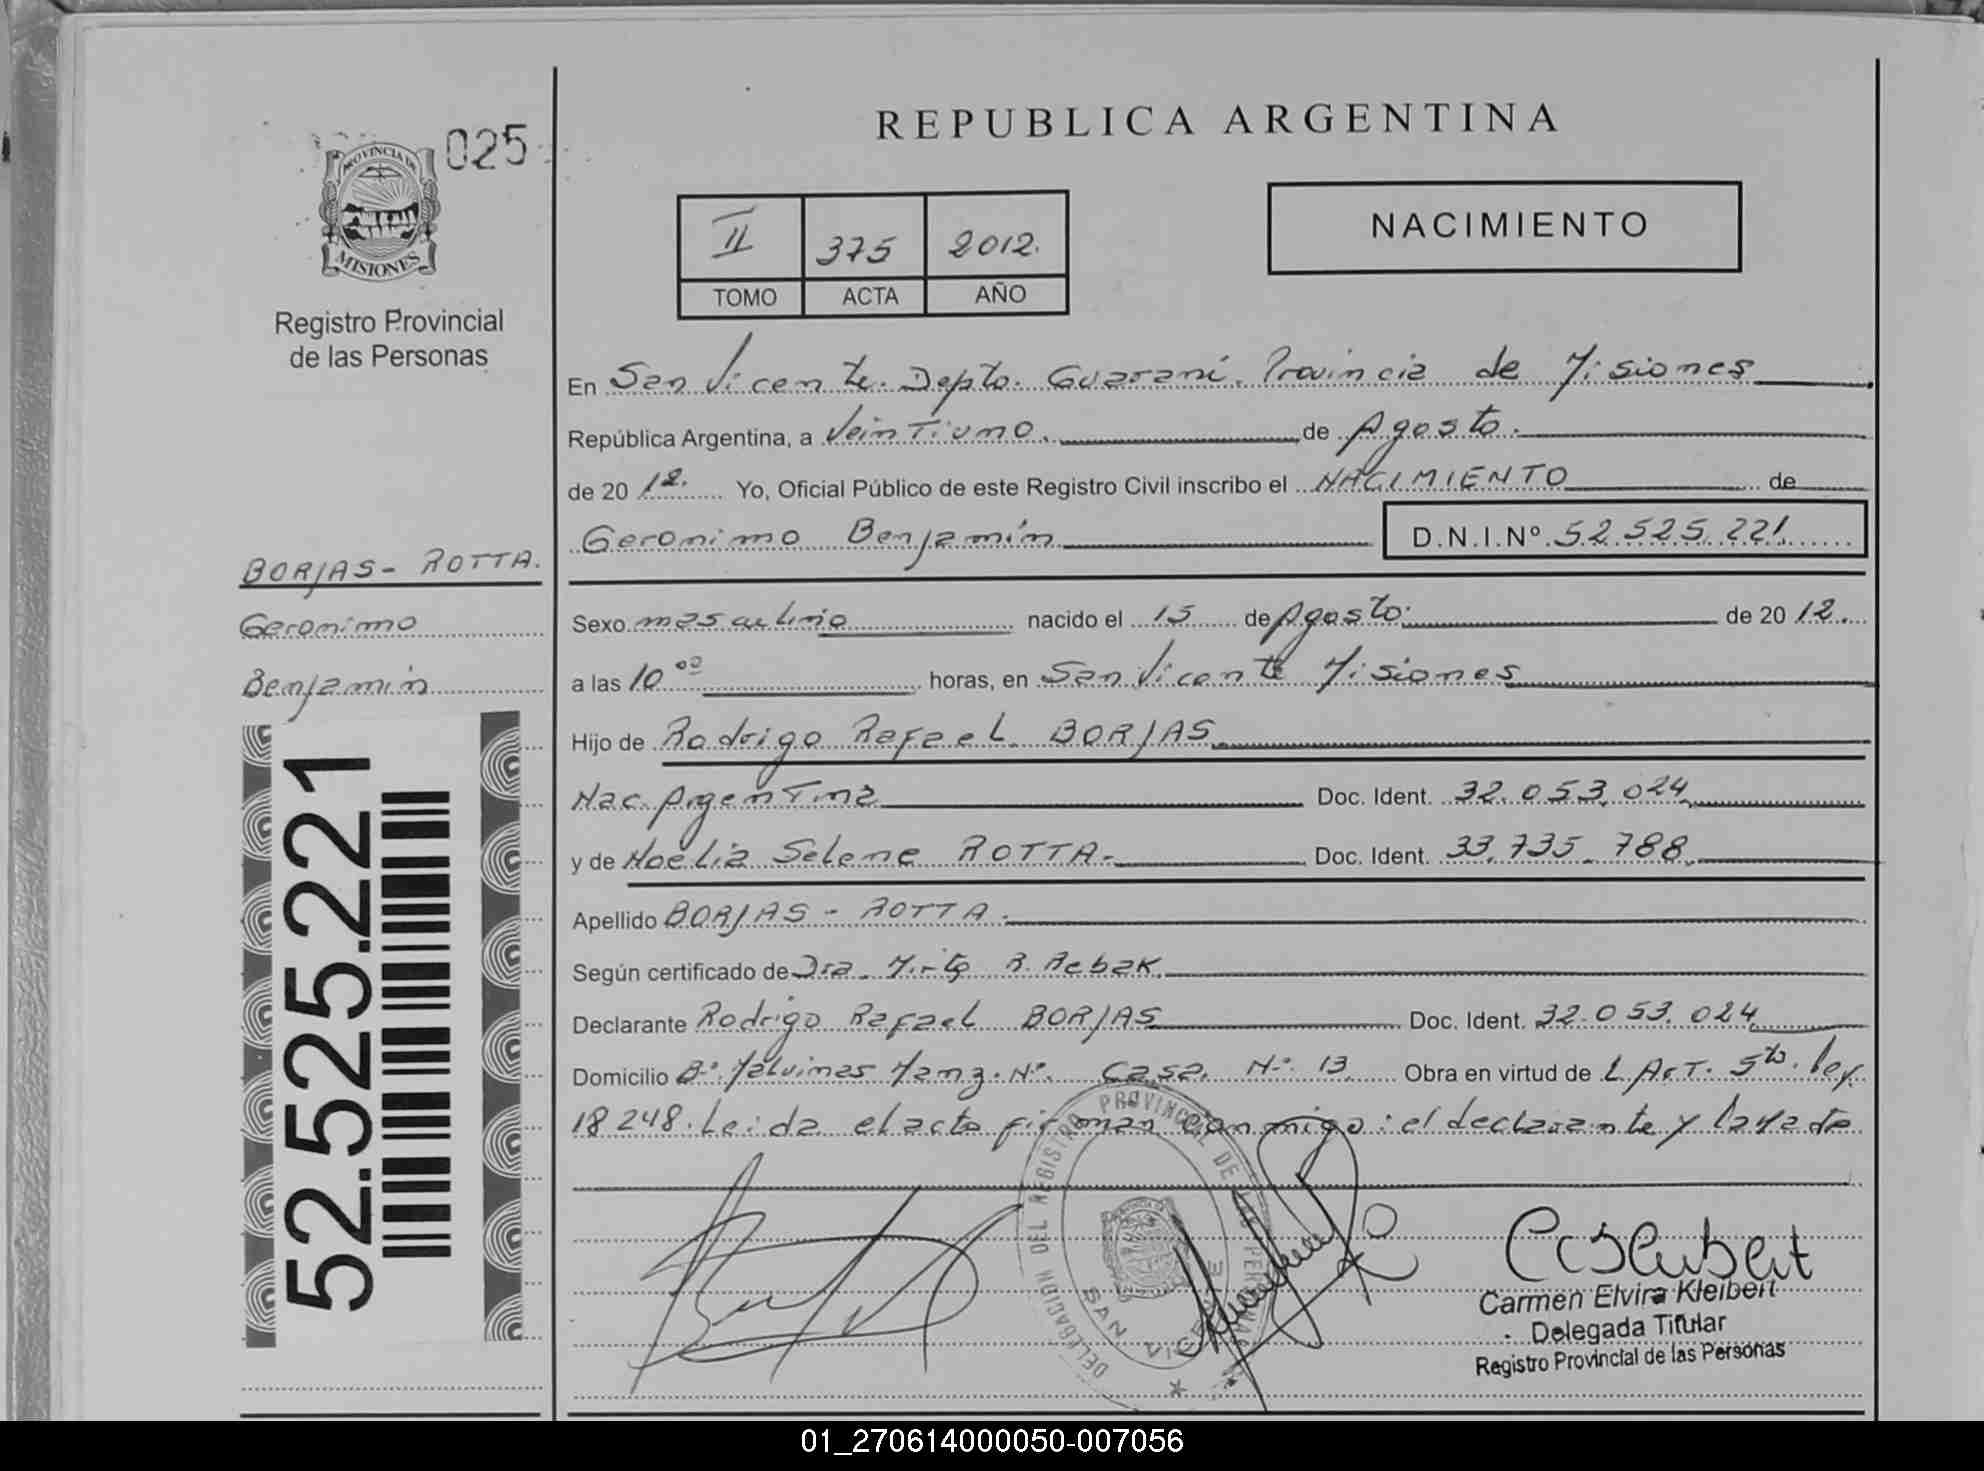 REPUBLICA ARGENTINA
025
PROVINCIA DE
MISIONES
Registro Provincial
de las Personas
II 375 2012.
TOMO ACTA AÑO
NACIMIENTO
En San Vicente. Depto. Guaraní. Provincia de Misiones
República Argentina, a Veintiuno. de Agosto.
de 20 12. Yo, Oficial Público de este Registro Civil inscribo el NACIMIENTO de
Geronimo Benjamín D.N.I.Nº 52.525.221
BORJAS - ROTTA.
Geronimo
Benjamín
52.525.221
Sexo masculino nacido el 15 de Agosto. de 20 12.
a las 10 00 horas, en San Vicente Misiones
Hijo de Rodrigo Rafael BORJAS
Nac. Argentina Doc. Ident. 32.053.024
y de Noelia Selene ROTTA.- Doc. Ident. 33.735.788
Apellido BORJAS - ROTTA.
Según certificado de Dra. Mirta R. Rebak.
Declarante Rodrigo Rafael BORJAS Doc. Ident. 32.053.024
Domicilio Bº. Malvinas Manz. Nº. Casa. Nº. 13. Obra en virtud de L Art. 5to. ley
18248. Leida el acta firman conmigo: el declarante y la
DELEGACION DEL REGISTRO PROVINCIAL DE LAS PERSONAS
SAN VICENTE
Carmen Elvira Kleibert
Delegada Titular
Registro Provincial de las Personas
01_270614000050-007056